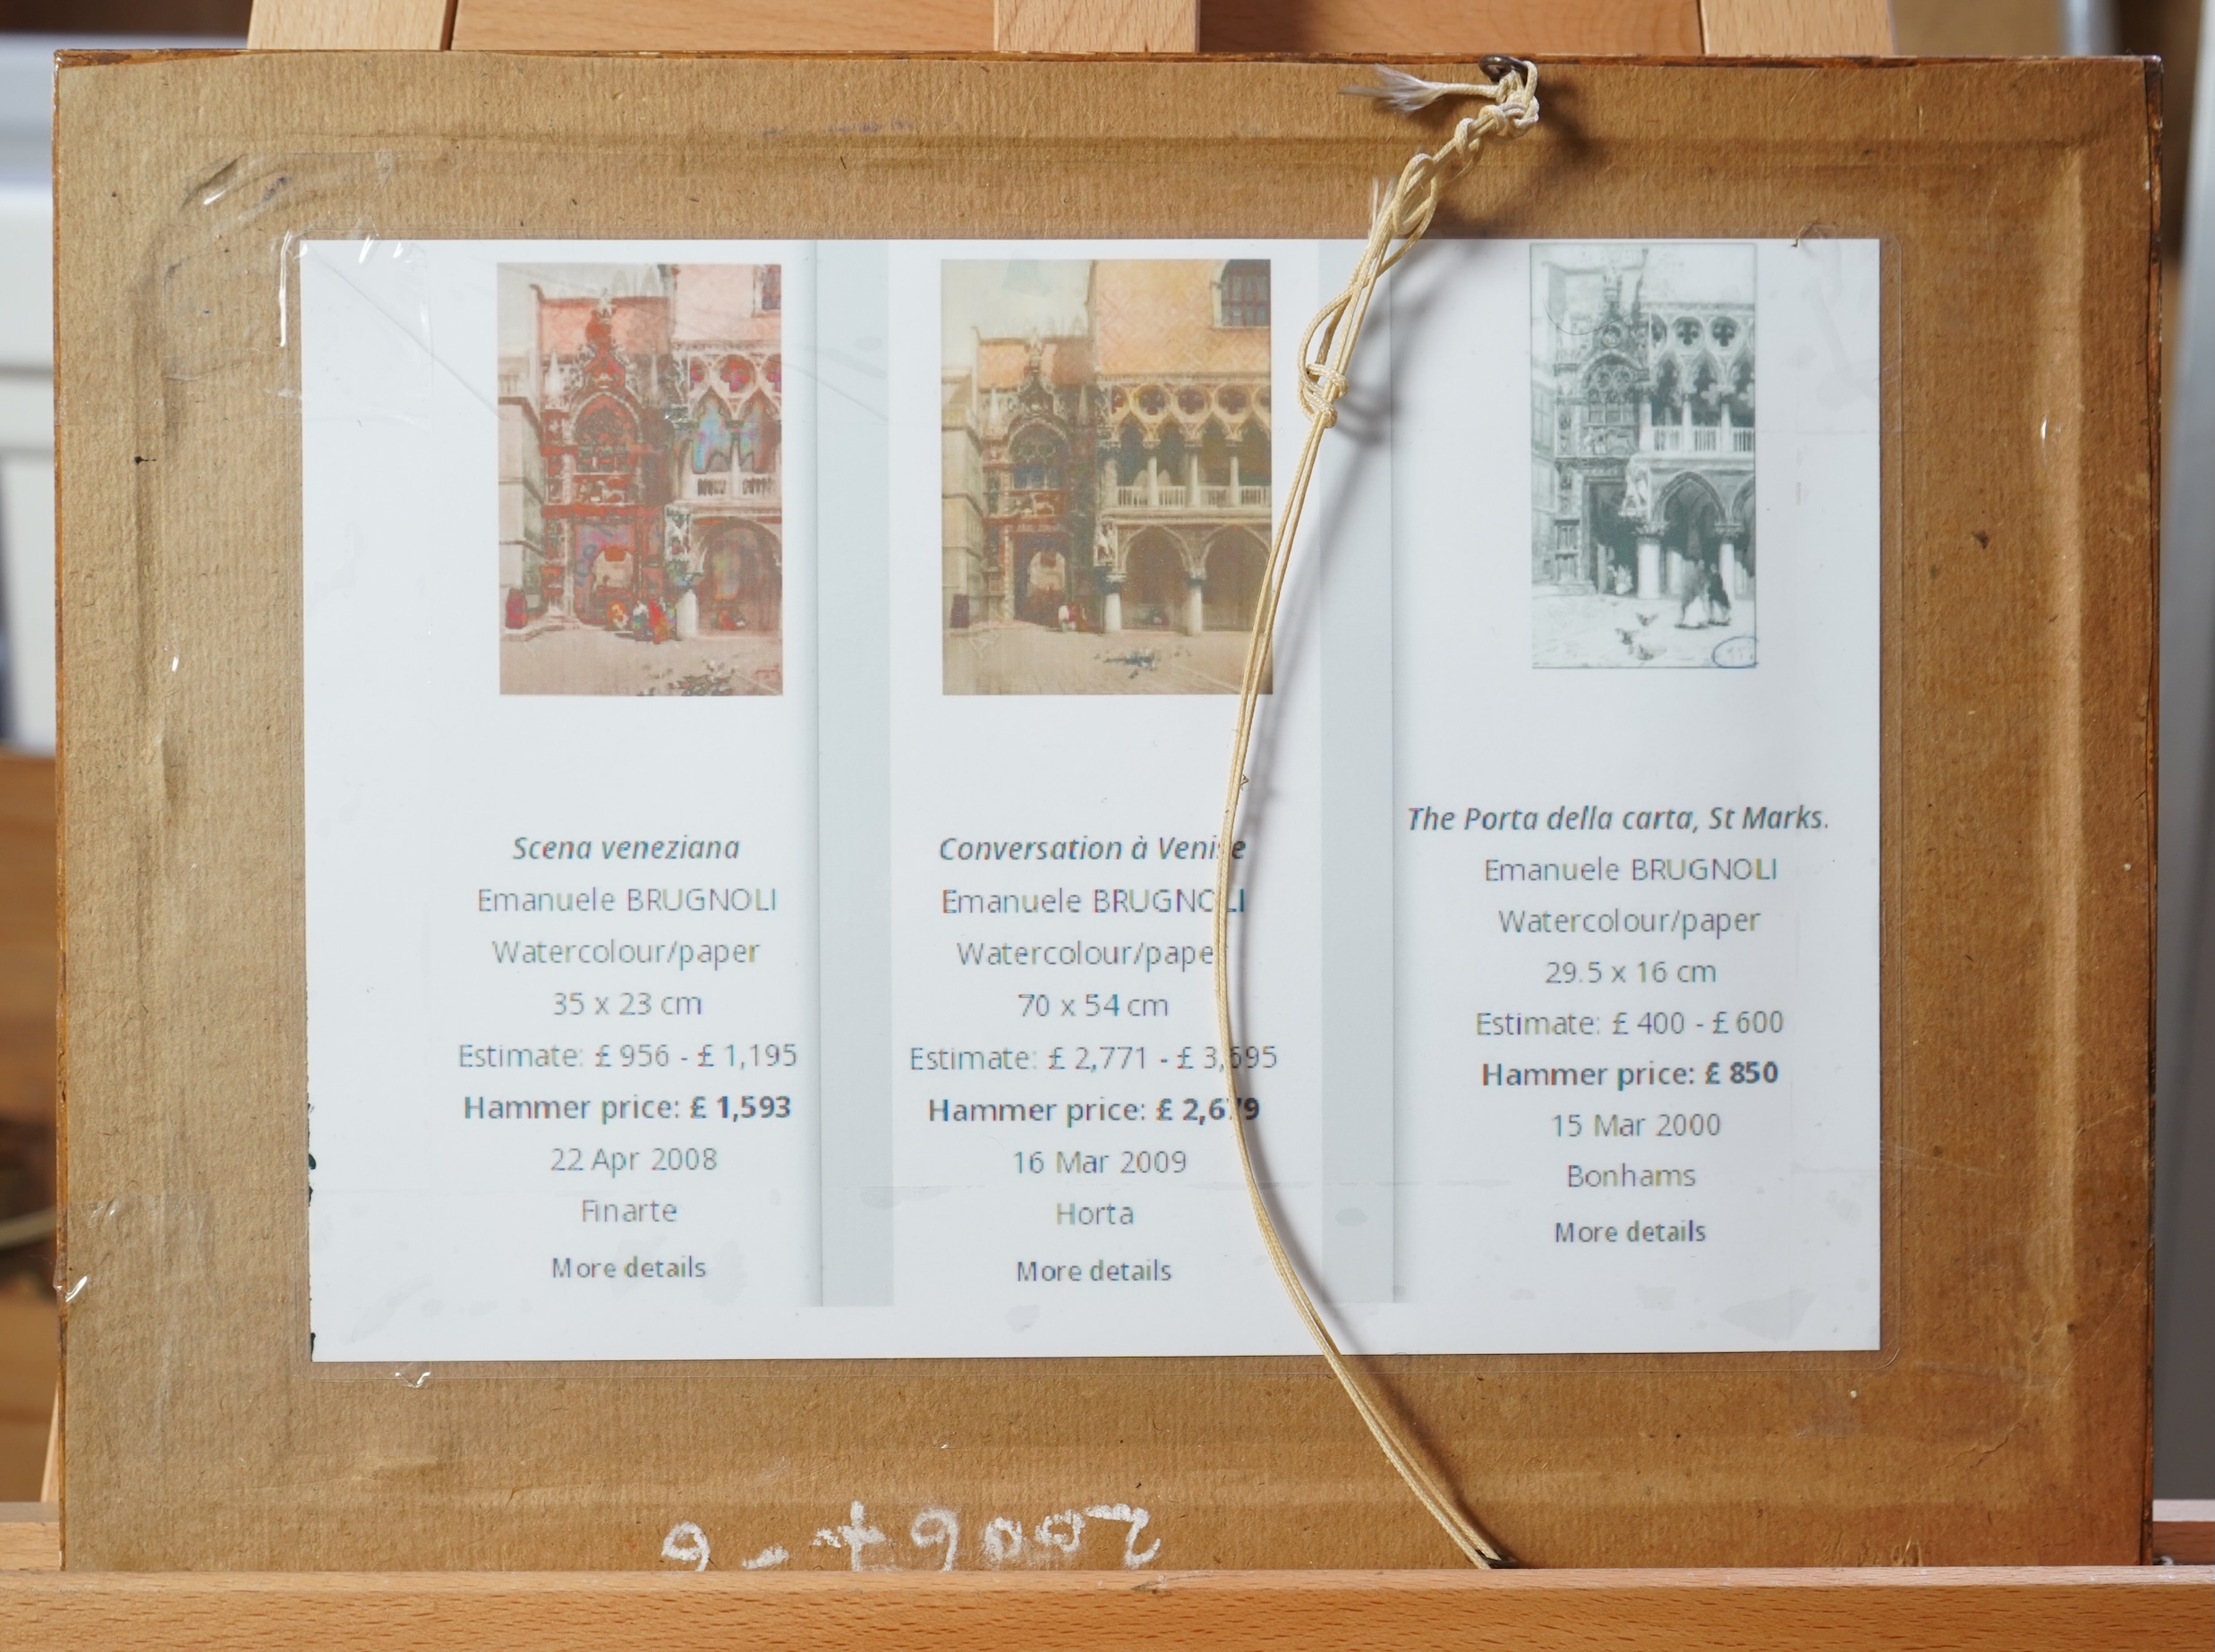 Scena veneziana
Emanuele BRUGNOLI
Watercolour/paper
35 x 23 cm
Estimate: £ 956 - £ 1,195
Hammer price: £ 1,593
22 Apr 2008
Finarte
More details
Conversation à Venise
Emanuele BRUGNOLI
Watercolour/pape
70 x 54 cm
Estimate: £ 2,771 - £ 3,695
Hammer price: £ 2,679
16 Mar 2009
Horta
More details
The Porta della carta, St Marks.
Emanuele BRUGNOLI
Watercolour/paper
29.5 x 16 cm
Estimate: £ 400 - £ 600
Hammer price: £ 850
15 Mar 2000
Bonhams
More details